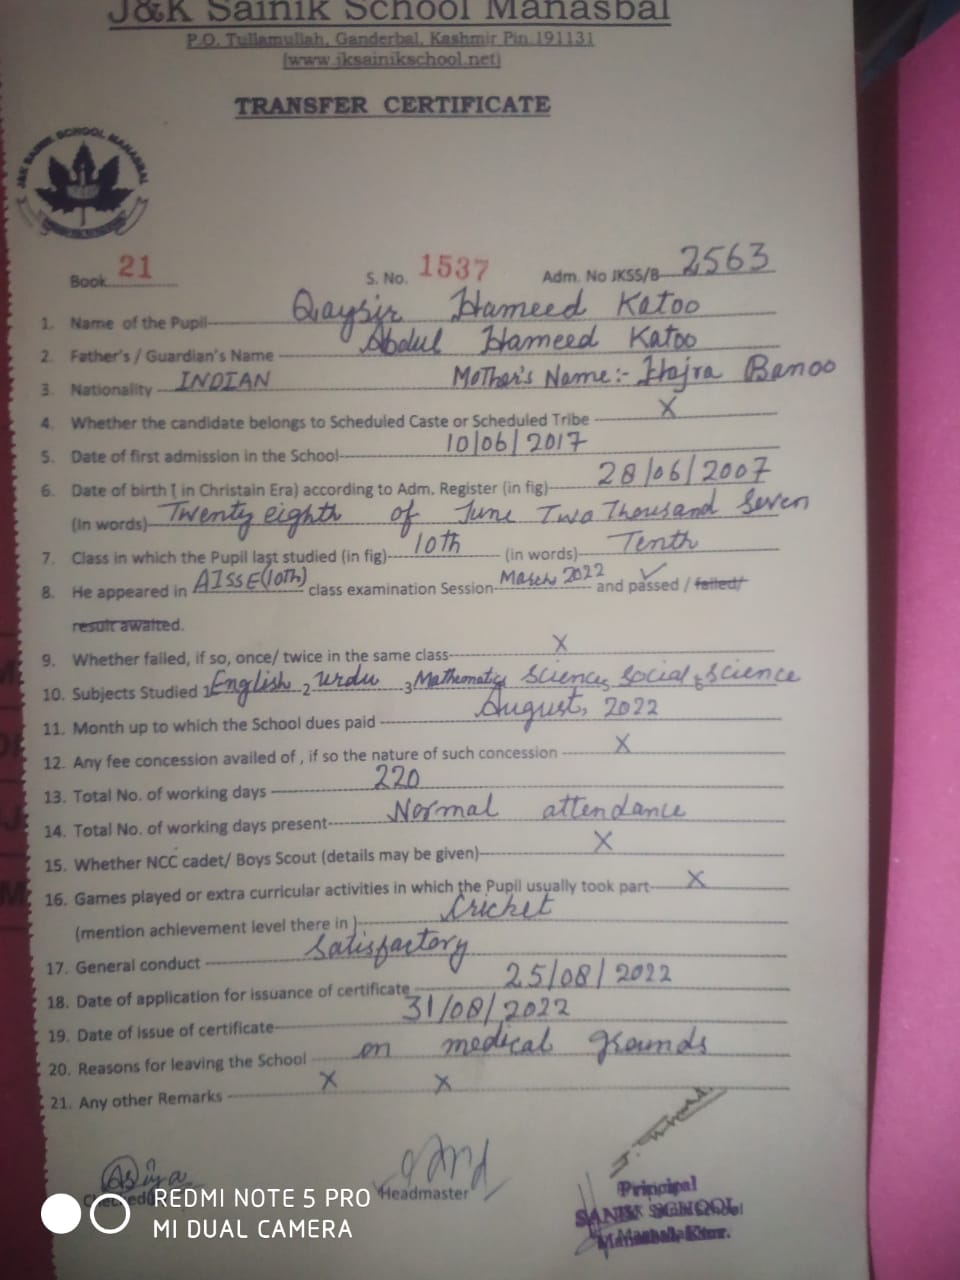 J&K Sainik School Manasbal
P.O. Tullamullah, Ganderbal, Kashmir Pin 191131
(www.jksainikschool.net)
TRANSFER CERTIFICATE
J&K SAINIK SCHOOL MANASBAL
Book 21 S. No. 1537 Adm. No JKSS/B 2563
1. Name of the Pupil Qaysir Hameed Katoo
2. Father's / Guardian's Name Abdul Hameed Katoo
3. Nationality INDIAN Mother's Name:- Hajra Banoo
4. Whether the candidate belongs to Scheduled Caste or Scheduled Tribe X
5. Date of first admission in the School 10/06/2017
6. Date of birth ( in Christain Era) according to Adm. Register (in fig) 28/06/2007
(In words) Twenty eighth of June Two Thousand Seven
7. Class in which the Pupil last studied (in fig) 10th (in words) Tenth
8. He appeared in AISSE(10th) class examination Session March 2022 and passed / failed/
result awaited.
9. Whether failed, if so, once/ twice in the same class X
10. Subjects Studied 1 English 2 Urdu 3 Mathematics Science, Social Science
11. Month up to which the School dues paid August, 2022
12. Any fee concession availed of , if so the nature of such concession X
13. Total No. of working days 220
14. Total No. of working days present Normal attendance
15. Whether NCC cadet/ Boys Scout (details may be given) X
16. Games played or extra curricular activities in which the Pupil usually took part X
(mention achievement level there in ) Cricket
17. General conduct Satisfactory
18. Date of application for issuance of certificate 25/08/2022
19. Date of issue of certificate 31/08/2022
20. Reasons for leaving the School on medical grounds
21. Any other Remarks X X
Asiya
Headmaster
Principal
SANIK SCHOOL
REDMI NOTE 5 PRO
MI DUAL CAMERA